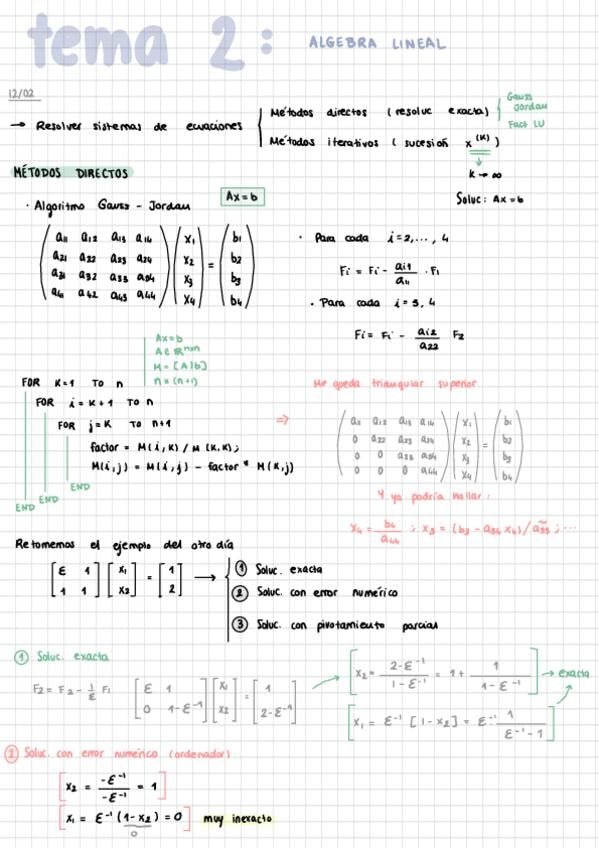 tema 2: ALGEBRA LINEAL
12/02
→ Resolver sistemas de ecuaciones
Métodos directos (resoluc exacta)
Gauss
Jordan
Fact LU
Métodos iterativos (sucesión x^(K))
K → ∞
Soluc: Ax = b
MÉTODOS DIRECTOS
· Algoritmo Gauss - Jordan
Ax = b
a11 a12 a13 a14 x1 b1
a21 a22 a23 a24 x2 = b2
a31 a32 a33 a34 x3 b3
a41 a42 a43 a44 x4 b4
· Para cada i=2,..., 4
Fi = Fi - ai1/a11 · F1
· Para cada i = 3, 4
Fi = Fi - ai2/a22 F2
Ax=b
A∈ℝ^nxn
M = [A|b]
n x (n+1)
FOR K=1 TO n
FOR i = K+1 TO n
FOR j = K TO n+1
factor = M(i,K) / M(K,K);
M(i,j) = M(i,j) - factor * M(K,j)
END
END
END
⇒
Me queda triangular superior
a11 a12 a13 a14 x1 b1
0 a22 a23 a24 x2 = b2
0 0 a33 a34 x3 b3
0 0 0 a44 x4 b4
Y ya podría hallar:
x4 = b4/a44 ; x3 = (b3 - a34 x4) / ã33 ; ...
Retomemos el ejemplo del otro día
[ε 1] [x1] = [1]
[1 1] [x2] [2]
→
① Soluc. exacta
② Soluc. con error numérico
③ Soluc. con pivotamiento parcial
① Soluc. exacta
F2 = F2 - 1/ε F1
[ε 1] [x1] = [1]
[0 1-ε⁻¹] [x2] [2-ε⁻¹]
x2 = (2-ε⁻¹)/(1-ε⁻¹) = 1 + 1/(1-ε⁻¹) → exacta
x1 = ε⁻¹ [1-x2] = ε⁻¹· 1/(ε⁻¹-1)
② Soluc. con error numérico (ordenador)
x2 = -ε⁻¹/-ε⁻¹ = 1
x1 = ε⁻¹ (1-x2) = 0 muy inexacto
0